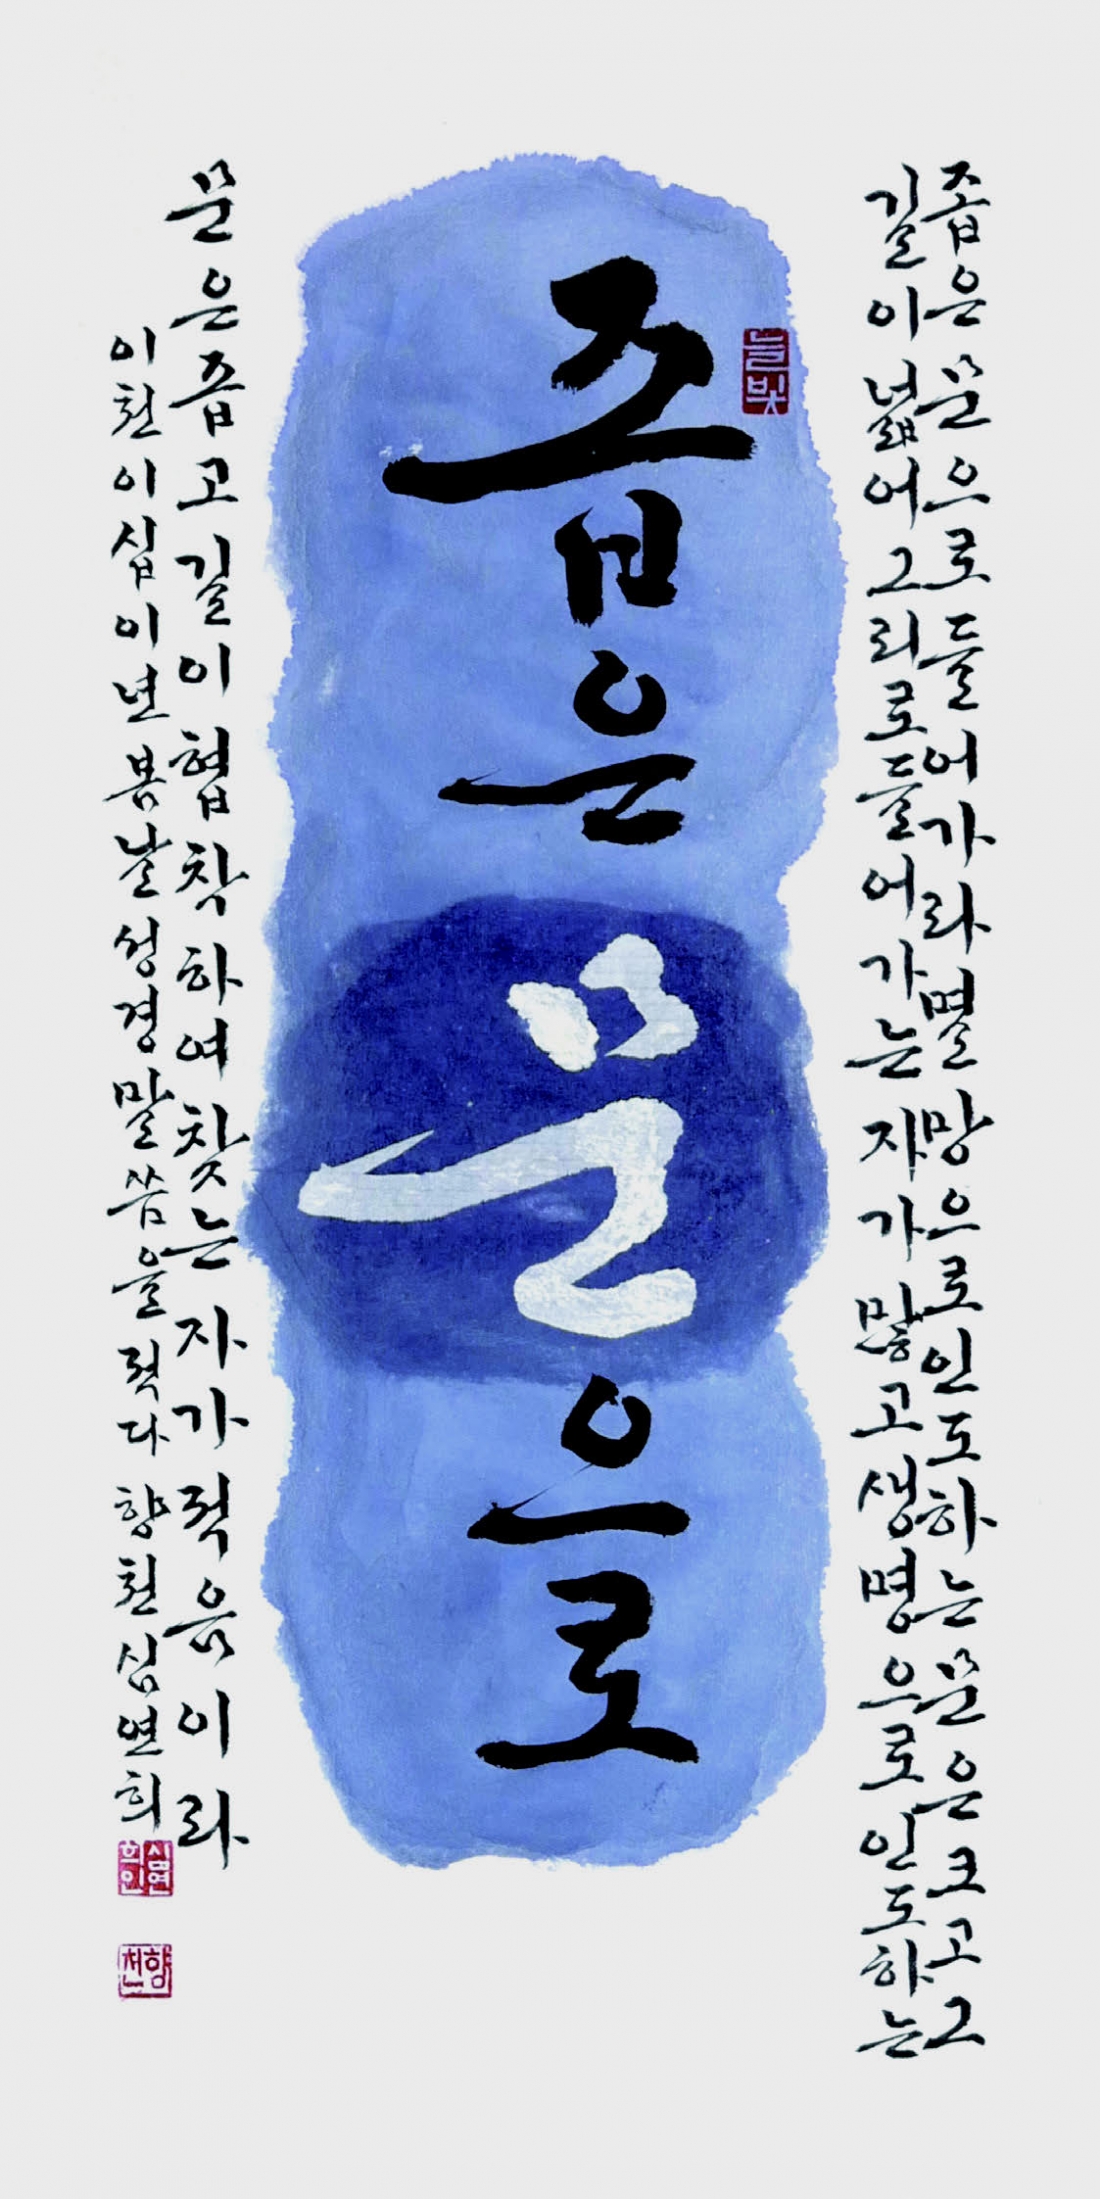 좁은 문으로 들어가라 멸망으로 인도하는 문은 크고 그
길이 넓어 그리로 들어가는 자가 많고 생명으로 인도하는
좁은 문으로
문은 좁고 길이 협착하여 찾는 자가 적음이라
이천이십이년 봄날 성경말씀을 적다 향천 심연희
심연희인
향천